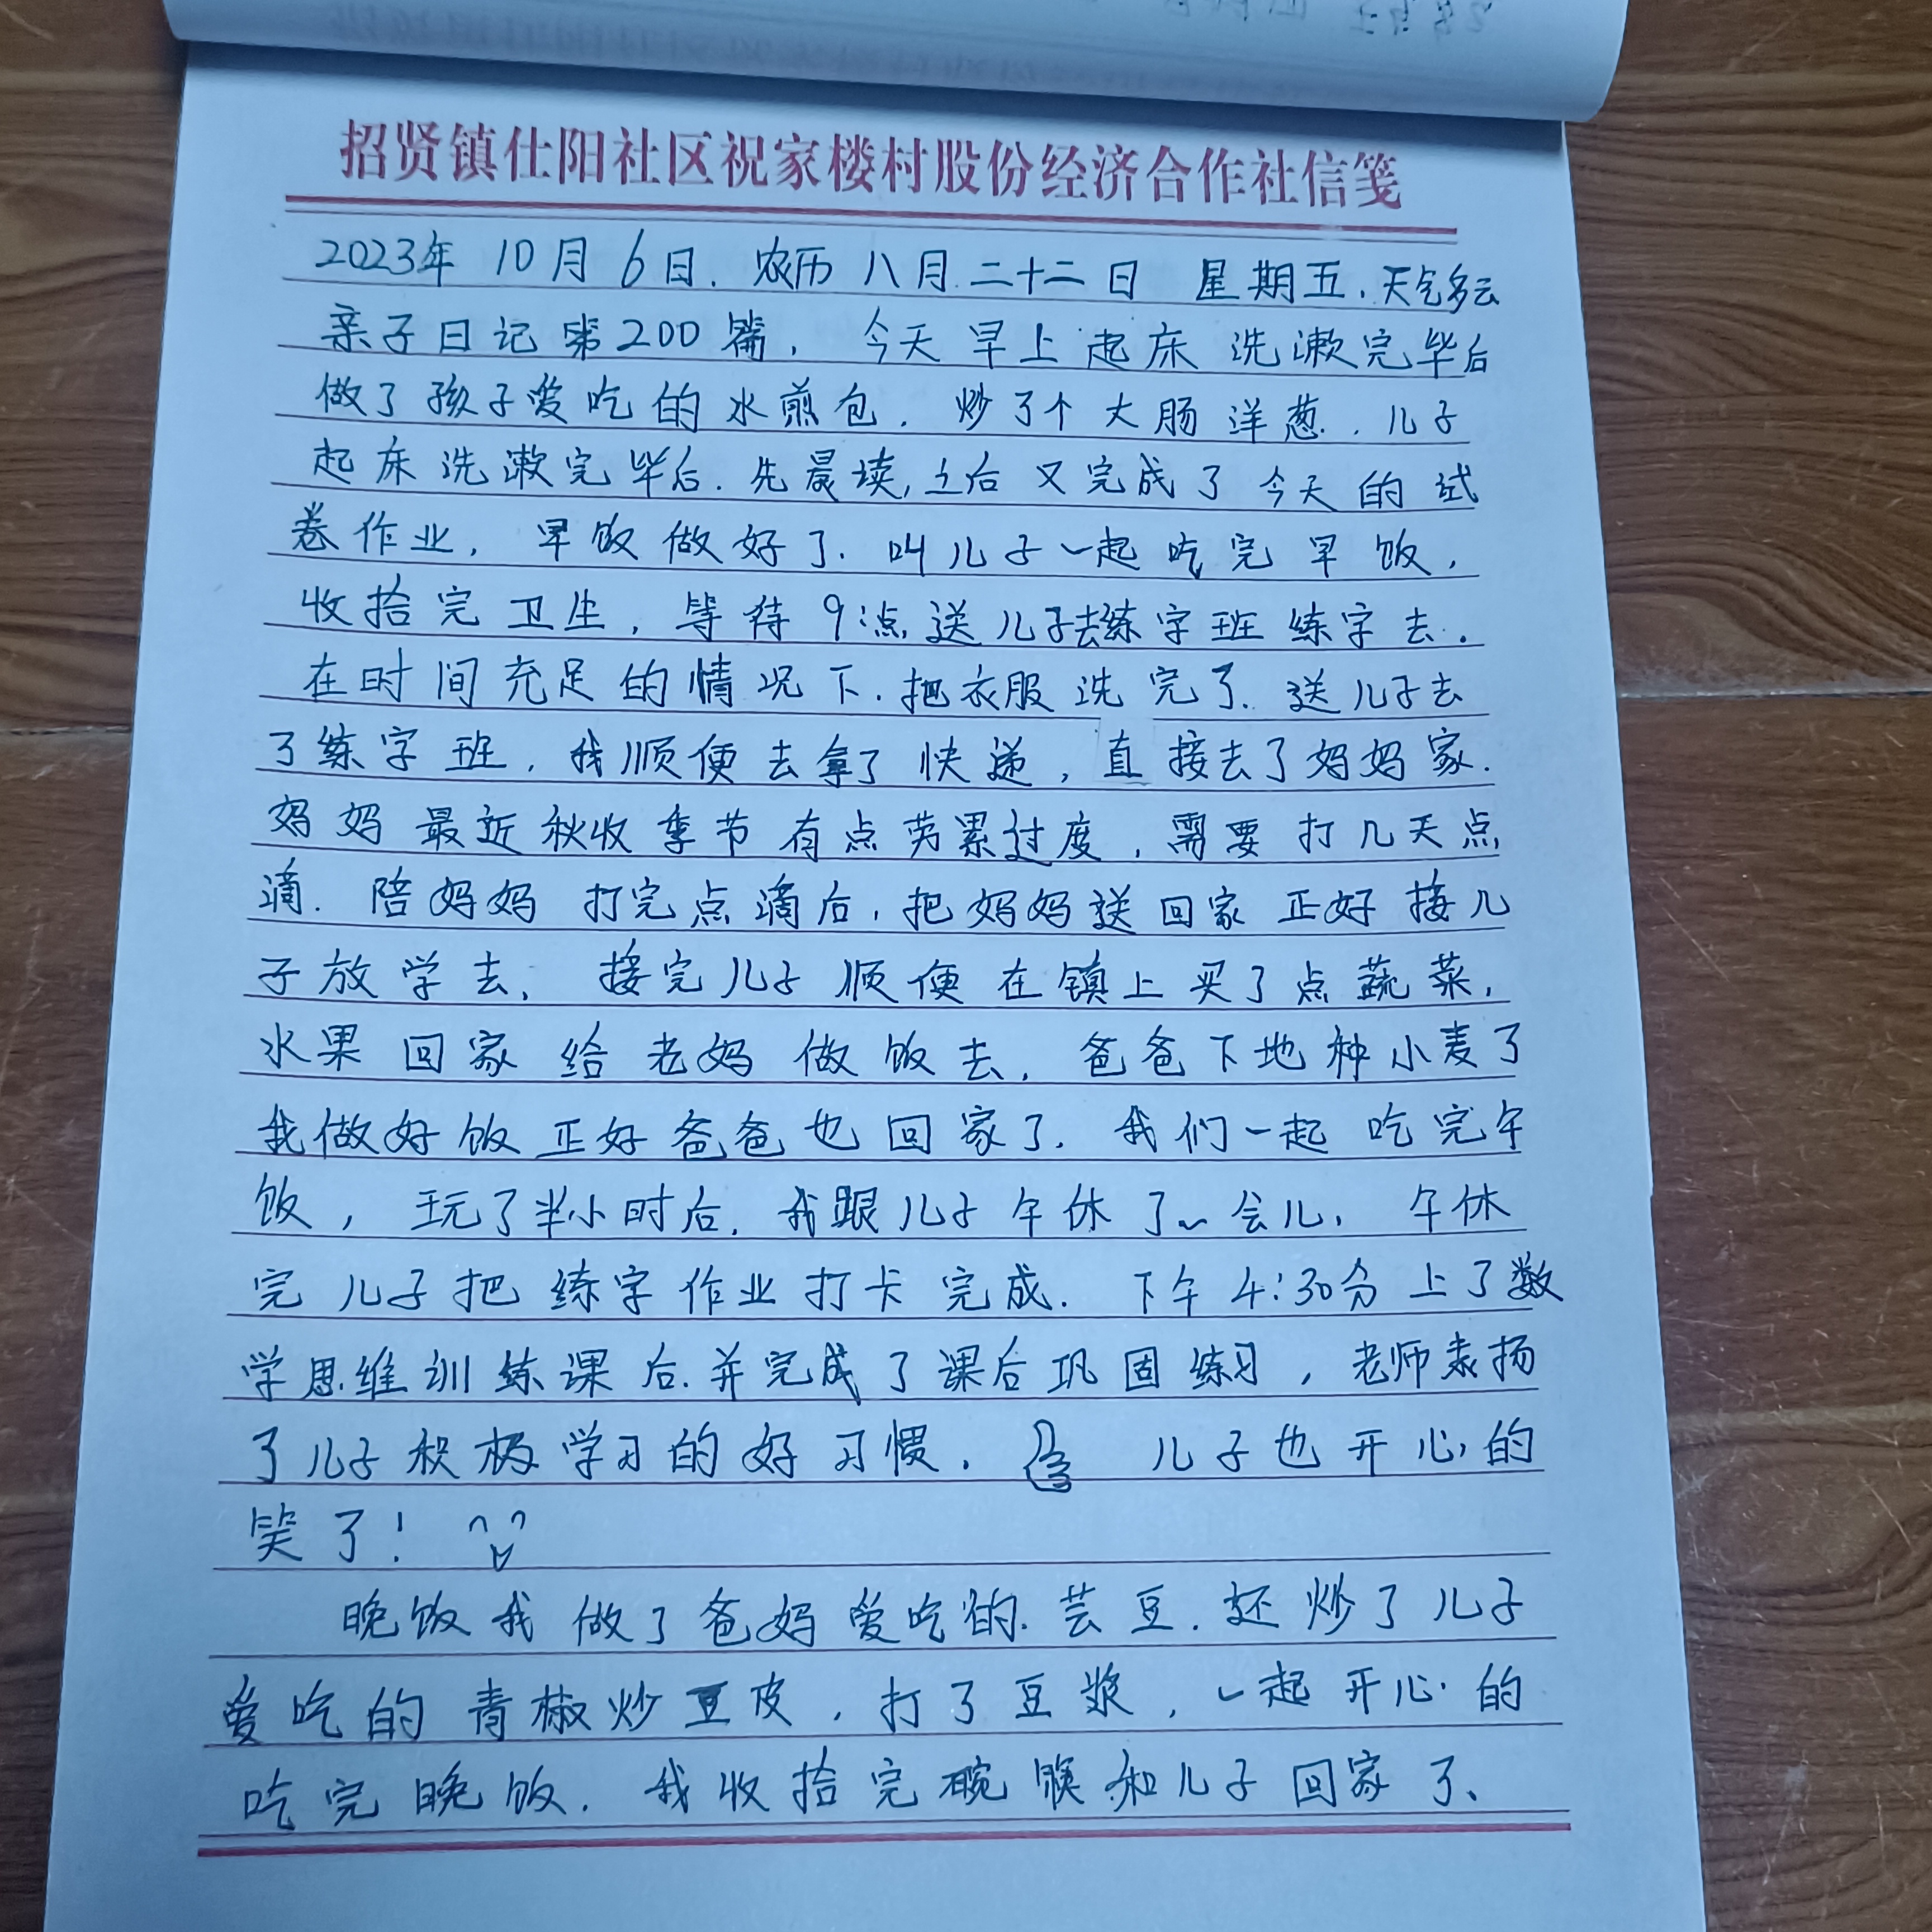 招贤镇仕阳社区祝家楼村股份经济合作社信笺
2023年 10月 6日. 农历 八月二十二日 星期五. 天气多云
亲子日记第200篇. 今天早上起床洗漱完毕后
做了孩子爱吃的水煎包. 炒了个大肠洋葱. 儿子
起床洗漱完毕后. 先晨读, 之后又完成了今天的试
卷作业, 早饭做好了. 叫儿子一起吃完早饭.
收拾完卫生, 等待9:点送儿子去练字班练字去.
在时间充足的情况下. 把衣服洗完了. 送儿子去
了练字班, 我顺便去拿了快递, 直接去了妈妈家.
妈妈最近秋收季节有点劳累过度, 需要打几天点
滴. 陪妈妈打完点滴后, 把妈妈送回家正好接儿
子放学去, 接完儿子顺便在镇上买了点蔬菜,
水果回家给老妈做饭去, 爸爸下地种小麦了
我做好饭正好爸爸也回家了. 我们一起吃完午
饭, 玩了半小时后, 我跟儿子午休了一会儿, 午休
完儿子把练字作业打卡完成. 下午4:30分上了数
学思维训练课后. 并完成了课后巩固练习, 老师表扬
了儿子积极学习的好习惯. 儿子也开心的
笑了!
晚饭我做了爸妈爱吃的. 芸豆. 还炒了儿子
爱吃的青椒炒豆皮, 打了豆浆, 一起开心的
吃完晚饭. 我收拾完碗筷和儿子回家了、